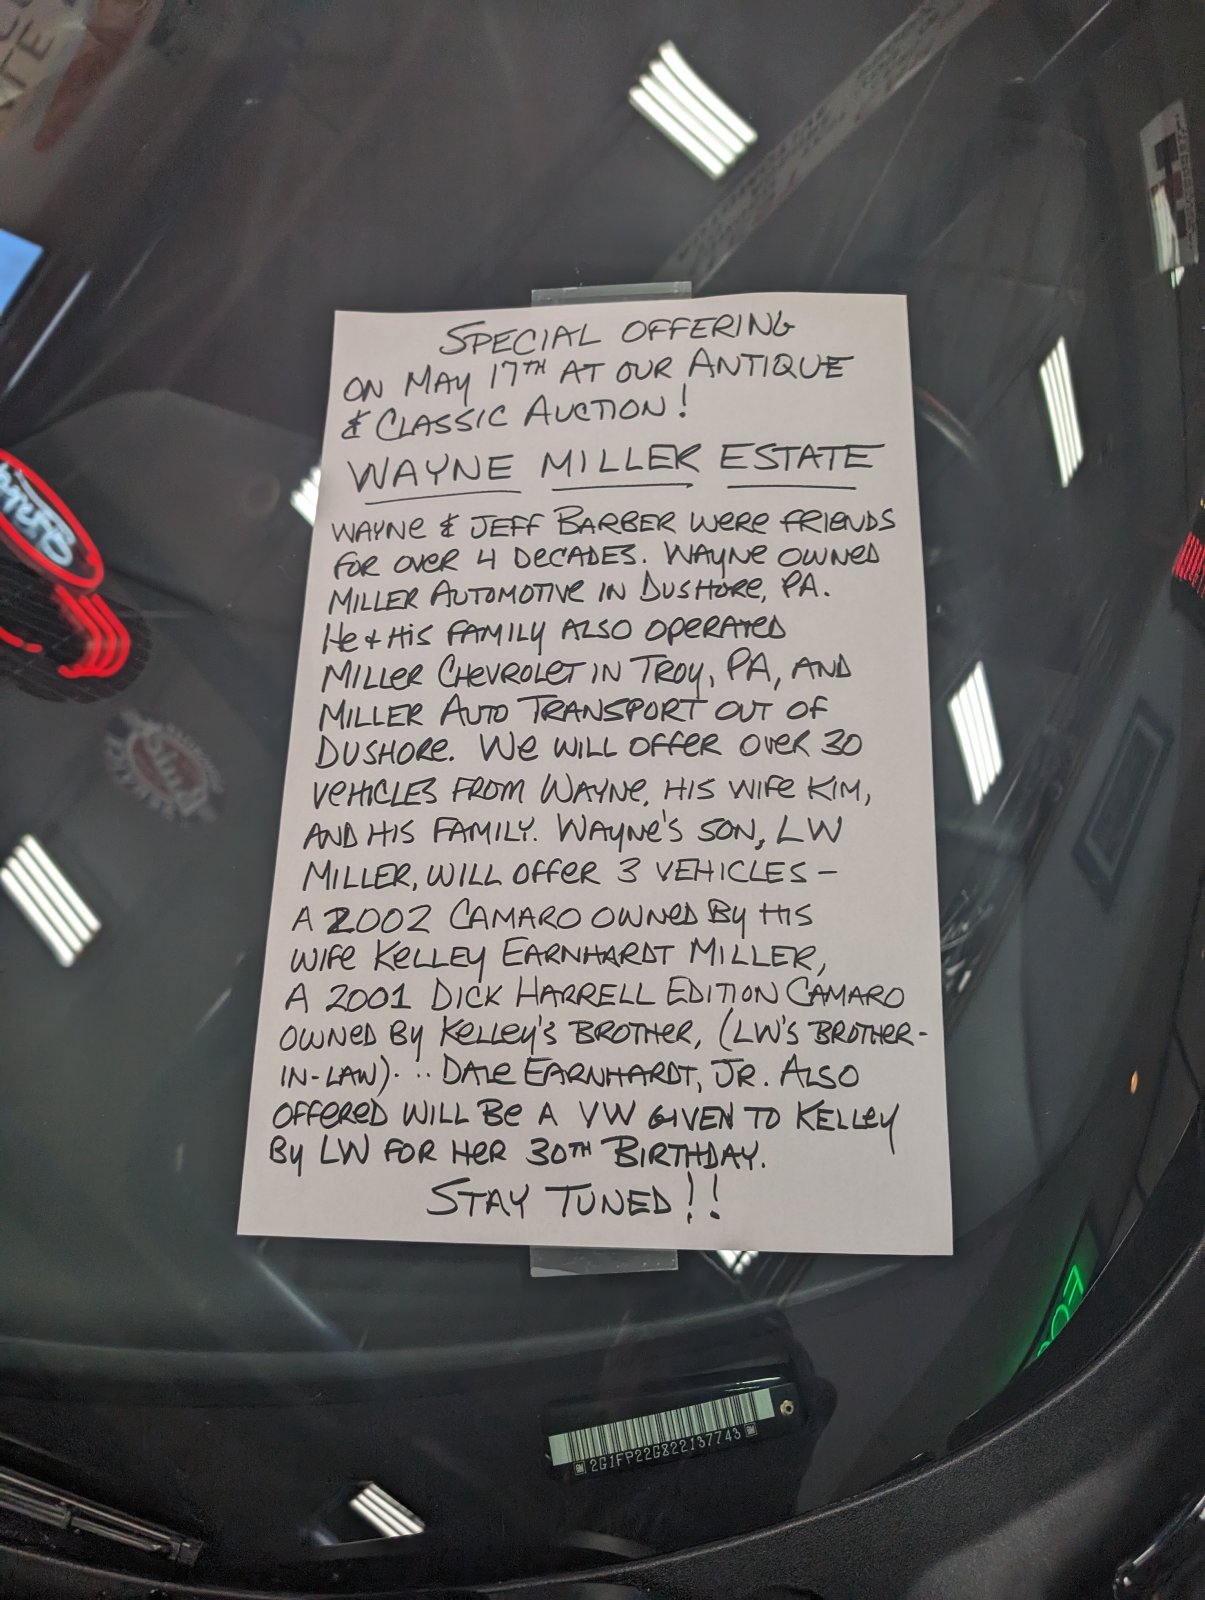 SPECIAL OFFERING
ON MAY 17TH AT OUR ANTIQUE
& CLASSIC AUCTION!
WAYNE MILLER ESTATE
WAYNE & JEFF BARBER WERE FRIENDS
FOR OVER 4 DECADES. WAYNE OWNED
MILLER AUTOMOTIVE IN DUSHORE, PA.
HE + HIS FAMILY ALSO OPERATED
MILLER CHEVROLET IN TROY, PA, AND
MILLER AUTO TRANSPORT OUT OF
DUSHORE. WE WILL OFFER OVER 30
VEHICLES FROM WAYNE, HIS WIFE KIM,
AND HIS FAMILY. WAYNE'S SON, LW
MILLER, WILL OFFER 3 VEHICLES –
A 2002 CAMARO OWNED BY HIS
WIFE KELLEY EARNHARDT MILLER,
A 2001 DICK HARRELL EDITION CAMARO
OWNED BY KELLEY'S BROTHER, (LW'S BROTHER-
IN-LAW)... DALE EARNHARDT, JR. ALSO
OFFERED WILL BE A VW GIVEN TO KELLEY
BY LW FOR HER 30TH BIRTHDAY.
STAY TUNED!!
2G1FP22G822137743